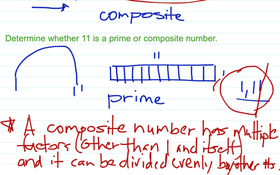 composite
Determine whether 11 is a prime or composite number.
11
11
1
1, 11
prime
* A composite number has multiple
factors (other than 1 and itself)
and it can be divided evenly by other #s.